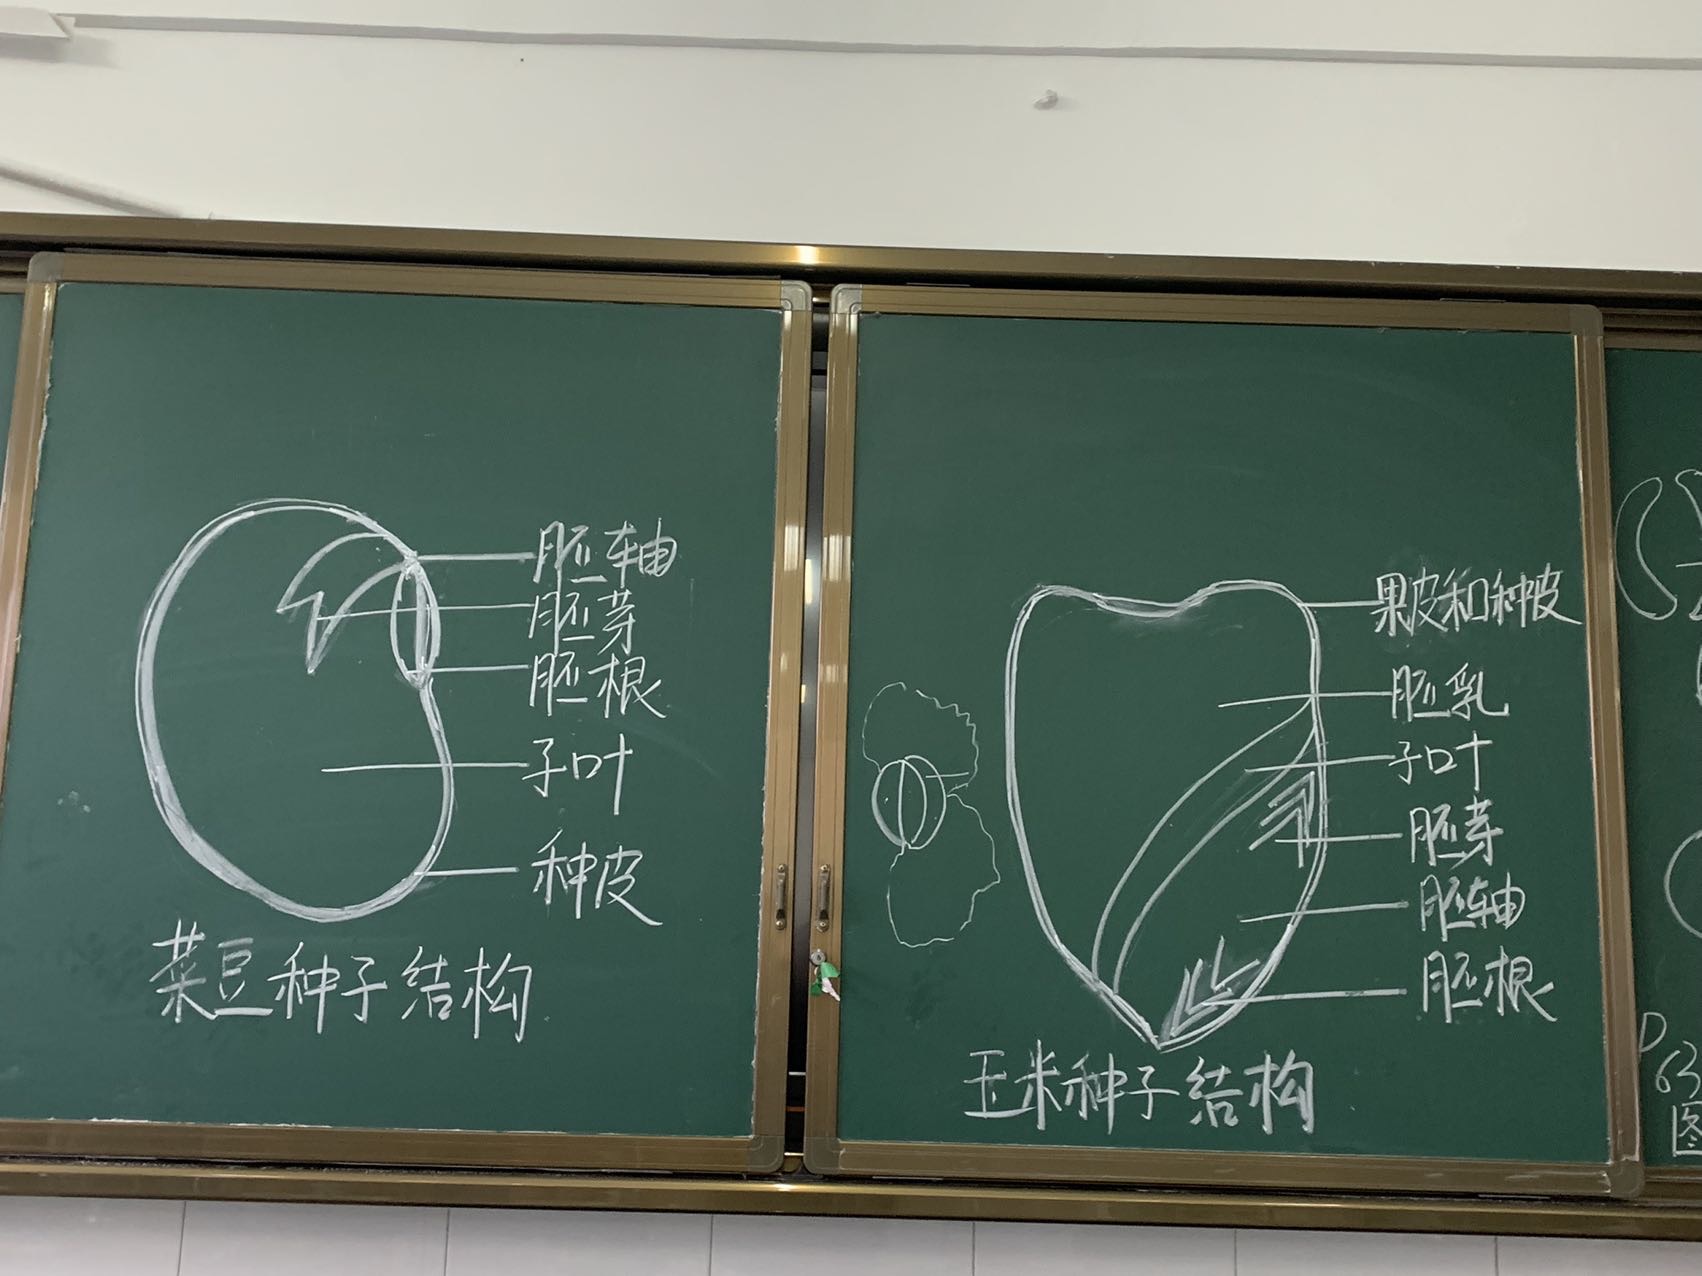 胚轴
胚芽
胚根
子叶
种皮
菜豆种子结构
果皮和种皮
胚乳
子叶
胚芽
胚轴
胚根
玉米种子结构
P63
图